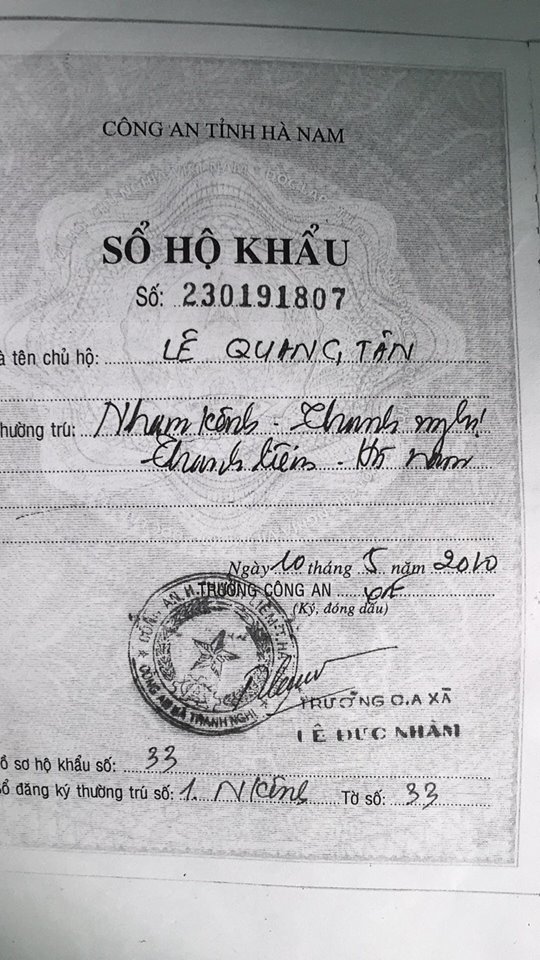 CÔNG AN TỈNH HÀ NAM
SỔ HỘ KHẨU
Số: 230191807
à tên chủ hộ: LÊ QUANG TÂN
hường trú: Nham Kênh - Thanh nghị
Thanh Liêm - Hà nam
Ngày 10 tháng 5 năm 2010
TRƯỞNG CÔNG AN xã
(Ký, đóng dấu)
CÔNG AN XÃ THANH NGHỊ
TRƯỞNG C.A XÃ
LÊ ĐỨC NHÂM
ồ sơ hộ khẩu số: 33
ổ đăng ký thường trú số: 1. N Kênh Tờ số: 33